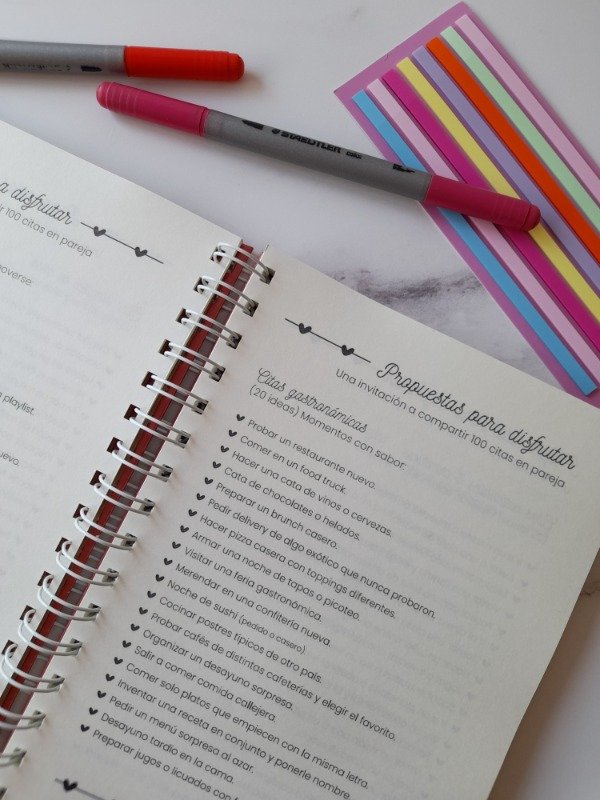 STAEDTLER
disfrutar
100 citas en pareja
playlist.
Propuestas para disfrutar
Una invitación a compartir 100 citas en pareja
Citas gastronómicas
(20 ideas) Momentos con sabor.
Probar un restaurante nuevo.
Comer en un food truck.
Hacer una cata de vinos o cervezas.
Cata de chocolates o helados.
Preparar un brunch casero.
Pedir delivery de algo exótico que nunca probaron.
Hacer pizza casera con toppings diferentes.
Armar una noche de tapas o picoteo.
Visitar una feria gastronómica.
Merendar en una confitería nueva.
Noche de sushi (pedido o casero)
Cocinar postres típicos de otro país.
Probar cafés de distintas cafeterías y elegir el favorito.
Organizar un desayuno sorpresa.
Salir a comer comida callejera.
Comer solo platos que empiecen con la misma letra.
Inventar una receta en conjunto y ponerle nombre.
Pedir un menú sorpresa al azar.
Desayuno tardío en la cama.
Preparar jugos o licuados con